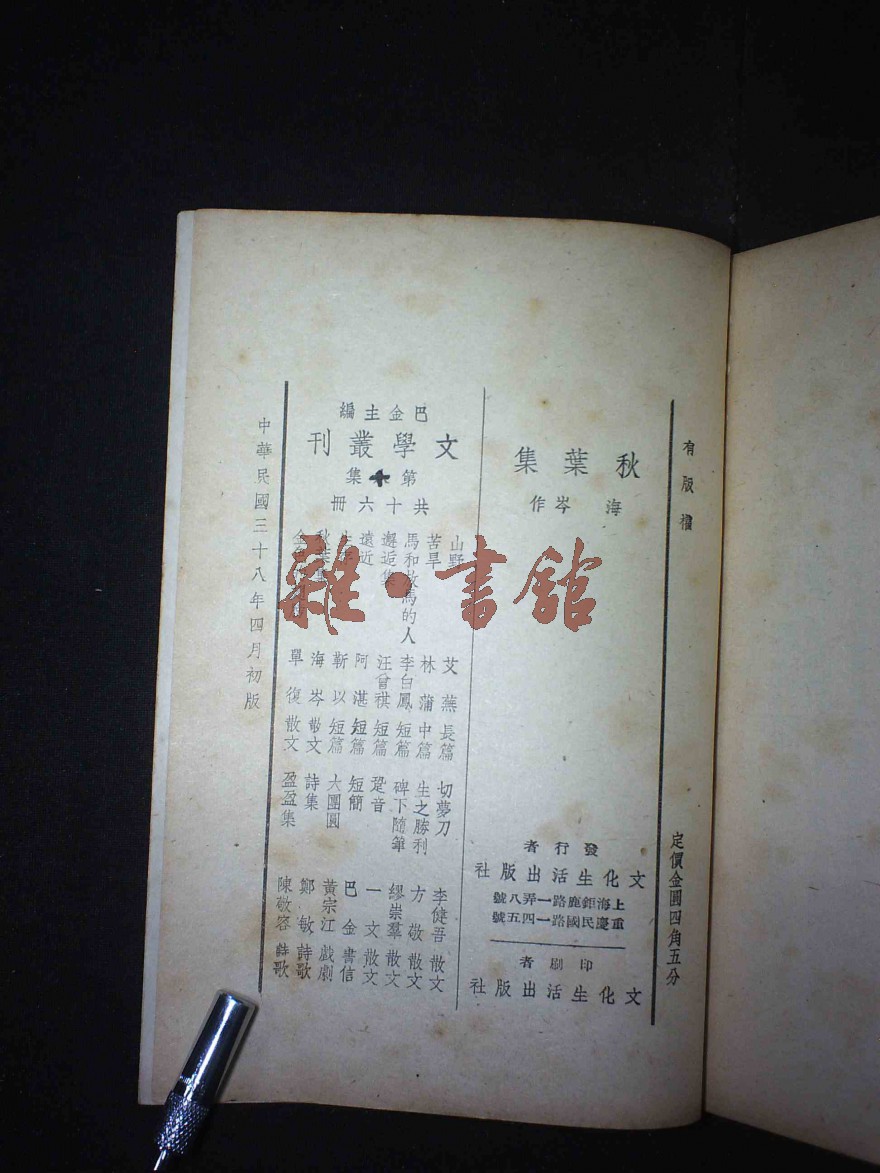 有版權
定價金圓四角五分
秋葉集
海岑作
發行者
文化生活出版社
上海鉅鹿路一弄八號
重慶民國路一四五號
印刷者
文化生活出版社
巴金主編
文學叢刊
第十集
共十六冊
山野 艾蕪 長篇
苦旱 林蒲 中篇
馬和放馬的人 李白鳳 短篇
邂逅集 汪曾祺 短篇
遠近 阿湛 短篇
靳以 短篇
秋葉集 海岑 散文
金 單復 散文
切夢刀 李健吾 散文
生之勝利 方敬 散文
碑下隨筆 繆崇羣 散文
跫音 一文 散文
短簡 巴金 書信
大團圓 黃宗江 戲劇
詩集 鄭敏 詩歌
盈盈集 陳敬容 詩歌
中華民國三十八年四月初版
雜·書館